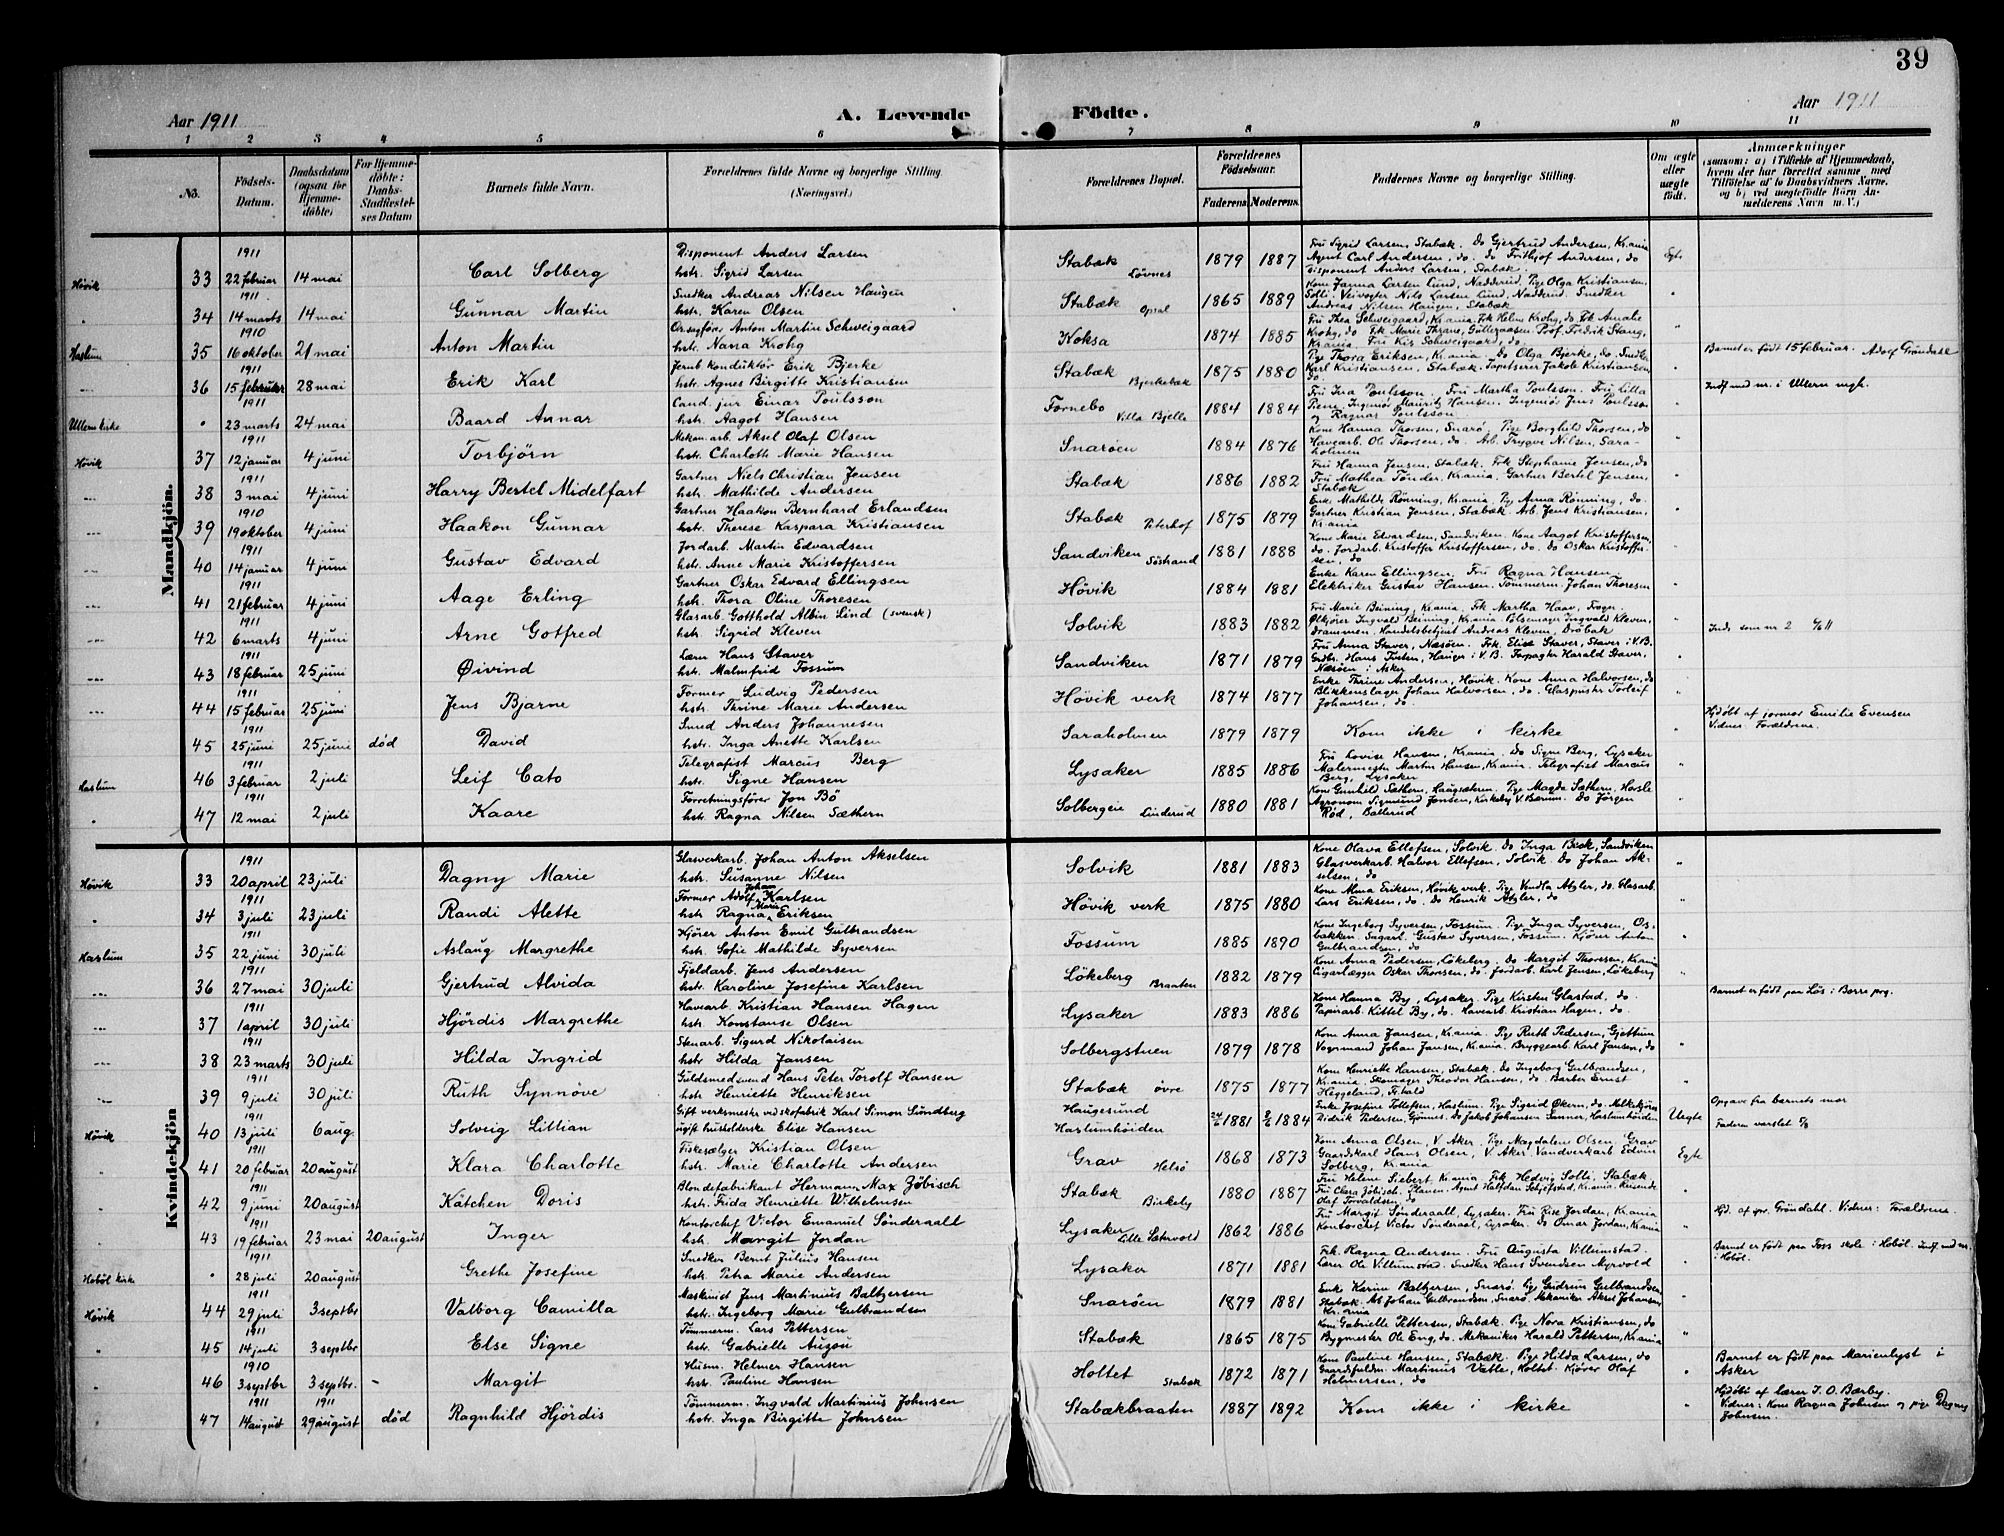 39
Aar 1911
A. Levende
Födte.
Aar 1911
1 2 3 4 5 6 7 8 9 10 11
No.
Födsels-Datum.
Daabsdatum (ogsaa for Hjemmedöbte)
For Hjemmedöbte: Daabs-Stadfæstelses Datum
Barnets fulde Navn.
Forældrenes fulde Navne og borgerlige Stilling. (Næringsvei.)
Forældrenes Bopæl.
Forældrenes Födselsaar.
Faderens. Moderens.
Faddernes Navne og borgerlige Stilling.
Om ægte eller uægte födt.
Anmærkninger
(saasom: a) i Tilfælde af Hjemmedaab, hvem der har forrettet samme, med Tilföielse af to Daabsvidners Navne, og b) ved uægtefödte Börn Anmelderens Navn m. V.)
Mandkjön.
Hövik 33 1911 22 februar 14 mai Carl Solberg Disponent Anders Larsen hstr. Sigrid Larsen Stabæk Lövnes 1879 1887 Fru Sigrid Larsen, Stabæk. Do Gjertrud Andersen, Kr.ania Agent Carl Andersen, do. do Frithjof Andersen, do Disponent Anders Larsen, Stabæk Egte
" 34 1911 14 marts 14 mai Gunnar Martin Snedker Andreas Nilsen Haugen hstr. Karen Olsen Stabæk Opsal 1865 1889 Kone Janna Larsen Lund, Nadderud. Pige Olga Kristiansen, Solli. Veivogter Nils Larsen Lund, Nadderud. Snedker Andreas Nilsen Haugen, Stabæk "
Haslum 35 1910 16 oktober 21 mai Anton Martin Orsagförer Anton Martin Schweigaard hstr. Nana Krohg Koksa 1874 1885 Fru Thea Schweigaard, Kr.ania. Frk Helm Krohg, do Fk Amalie Krohg, do Frk Marie Thrane, Gulleraasen Prof. Fredrik Stang, Kr.ania. Fru Kis Schweigaard, do. "
" 36 1911 15 februar 28 mai Erik Karl Jernb konduktör Erik Bjerke hstr. Agnes Birgitte Kristiansen Stabæk Bjerkebæk 1875 1880 Pige Thora Eriksen, Kr.ania. Do Olga Bjerke, do. Snedker Karl Kristiansen, Stabæk. Tapetserer Jakob Kristiansen do. " Barnet er födt 15 februar. Adolf Gröndahl
Ullern kirke " 1911 23 marts 24 mai Baard Annar Cand. jur Einar Poulsson hstr. Aagot Hansen Fornebo Villa Bjelle 1884 1884 Fru Ina Poulsson. Fru Martha Poulsson. Fru Lilla Piene, Ingeniör Mauritz Hansen, Ingeniör Jens Poulsson og Ragnar Poulsson " Indf med nr. i Ullern mgh.
Hövik 37 1911 12 januar 4 juni Torbjörn Mekan. arb. Aksel Olaf Olsen hstr. Charlotte Marie Hansen Snaröen 1884 1876 Kone Hanna Thorsen, Snarö, Pige Borghild Thorsen, do Havearb. Ole Thorsen, do. Arb. Trygve Nilsen, Saraholmen "
" 38 1911 3 mai 4 juni Harry Bertel Midelfart Gartner Niels Christian Jensen hstr. Mathilde Andersen Stabæk 1886 1882 Fru Hanna Jensen, Stabæk. Frk Stephanie Jensen, do Fru Mathea Tönder, Kr.ania. Gartner Bertel Jensen, Stabæk "
" 39 1910 19 oktober 4 juni Haakon Gunnar Gartner Haakon Bernhard Erlandsen hstr. Therese Kaspara Kristiansen Stabæk Peterhof 1875 1879 Enke Mathilde Rönning, Kr.ania, Pige Anna Rönning, do. Gartner Kristian Jensen, Stabæk Arb. Jens Kristiansen, Kr.ania "
" 40 1911 14 januar 4 juni Gustav Edvard Jordarb. Martin Edvardsen hstr. Anne Marie Kristoffersen Sandviken Söstrand 1881 1888 Kone Marie Edvardsen, Sandviken. Kone Aagot Kristoffersen, do. Jordarb. Kristoffer Kristoffersen, do. do Oskar Kristoffersen, do "
" 41 1911 21 februar 4 juni Aage Erling Gartner Oskar Edvard Ellingsen hstr. Thora Oline Thoresen Hövik 1884 1881 Enke Karen Ellingsen, Fru Ragna Hansen, Elektriker Gustav Hansen. Tömmerm. Johan Thoresen "
" 42 1911 6 marts 4 juni Arne Gotfred Glasarb. Gotthold Albin Lind (svensk) hstr. Sigrid Kleven Solvik 1883 1882 Fru Marie Beining, Kr.ania. Frk Martha Haar, Frogn. Ölkjörer Ingvald Beining, Kr.ania. Pölsemager Ingvald Kleven, Drammen, Handelsbetjent Andreas Kleven, Dröbak " Inds som nr 2 4/6 11
" 43 1911 18 februar 25 juni Öivind Lærer Hans Staver hstr. Malmfrid Fossum Sandviken 1871 1879 Fru Anna Staver, Næsöen. Frk. Elise Staver, Staver i V.B. Grdbr. Hans Tveten, Hauger i V.B. Forpagter Harald Staver, Næsöen i Asker "
" 44 1911 15 februar 25 juni Jens Bjarne Former Ludvig Pedersen hstr. Thrine Marie Andersen Hövik verk 1874 1877 Enke Thrine Andersen, Hövik. Kone Anna Halvorsen, do Blikkenslager Johan Halvorsen, do. Glaspuster Torleif Johansen, do. "
" 45 1911 25 juni 25 juni död David Smed Anders Johannesen hstr. Inga Anette Karlsen Saraholmen 1879 1879 Kom ikke i kirke " Hjdöbt af jormor Emilie Evensen Vidner. Forældrene.
Haslum 46 1911 3 februar 2 juli Leif Cato Telegrafist Marcus Berg hstr. Signe Hansen Lysaker 1885 1886 Fru Lovise Hansen, Kr.ania. Do Signe Berg, Lysaker Malermester Martin Hansen, Kr.ania. Telegrafist Marcus Berg, Lysaker "
" 47 1911 12 mai 2 juli Kaare Forretningsförer Jon Bö hstr. Ragna Nilsen Sæthern Solbergeie Linderud 1880 1881 Kone Gunhild Sæthern, Haugsætern. Pige Magda Sæthern, Horsle Agronom Sigmund Jonsen, Kirkeby V. Bærum. Do Jörgen Röd, Ballerud "
Kvindekjön
Hövik 33 1911 20 april 23 juli Dagny Marie Glasverkarb. Johan Anton Akselsen hstr. Susanne Nilsen Solvik 1881 1883 Kone Olava Ellefsen, Solvik. do Inga Beck, Sandviken Glasverkarb. Halvor Ellefsen, Solvik. do Johan Akselsen, do "
" 34 1911 3 juli 23 juli Randi Alette Former Adolf Johan Karlsen hstr. Ragna Marie Eriksen Hövik verk 1875 1880 Kone Alma Eriksen, Hövik verk. Pige Vendla Atzler, do. Glasarb. Lars Eriksen, do. do Henrik Atzler, do "
Haslum 35 1911 22 juni 30 juli Aslaug Margrethe Kjörer Anton Emil Gulbrandsen hstr. Sofie Mathilde Syversen Fossum 1885 1890 Kone Ingeborg Syversen, Fossum. Pige Inga Syversen, Osbakken. Sagarb. Gustav Syversen, Fossum. Kjörer Anton Gulbrandsen, do "
" 36 1911 27 mai 30 juli Gjertrud Alvida Fjeldarb. Jens Andersen hstr. Karoline Josefine Karlsen Lökeberg Braaten 1882 1879 Kone Anna Pedersen, Lökeberg. do Margit Thoresen, Kr.ania Cigarlægger Oskar Thoresen, do. Jordarb. Karl Jensen, Lökeberg "
" 37 1911 1 april 30 juli Hjördis Margrethe Havearb. Kristian Hansen Hagen hstr. Konstanse Olsen Lysaker 1883 1886 Kone Hanna By, Lysaker. Pige Kirsten Glastad, do. Papirarb. Kittel By, do. Havearb. Kristian Hagen, do. " Barnet er födt paa Lös i Borre prg.
" 38 1911 23 marts 30 juli Hilda Ingrid Stenarb. Sigurd Nikolaisen hstr. Hilda Jansen Solbergstuen 1879 1878 Kone Anna Jansen, Kr.ania. Pige Ruth Pedersen, Gjettum Vognmand Johan Jansen, Kr.ania. Bryggearb. Karl Jansen, do "
" 39 1911 9 juli 30 juli Ruth Synnöve Guldsmedsvend Hans Peter Torolf Hansen hstr. Henriette Henriksen Stabæk övre 1875 1877 Kone Henriette Hansen, Stabæk. Do Ingeborg Gulbrandsen, Kr.ania. Skomager Theodor Hansen, do Barber Ernst Heggeland, Fr.hald "
Hövik 40 1911 13 juli 6 aug. Solveig Lillian Gift verksmester vid skofabrik Karl Simon Sundberg ugift husholderske Elise Hansen Haugesund Haslumhöiden 24/2 1881 9/2 1884 Enke Josefine Tollefsen, Haslum. Pige Sigrid Ökern, do. Melkekjörer Didrik Pedersen, Gjönnes. Do Jakob Johansen Semner, Haslumhöiden Uegte Opgave fra barnets mor Faderen varslet 5/8
" 41 1911 20 februar 20 august Klara Charlotte Fiskesælger Kristian Olsen hstr. Marie Charlotte Andersen Grav Helsö 1868 1873 Kone Anna Olsen, V. Aker. Pige Magdalene Olsen, Grav Gaardskarl Hans Olsen, V. Aker Vandverkarb Edvin Solberg, Kr.ania Egte
" 42 1911 9 juni 20 august Kätchen Doris Blondefabrikant Hermann Max Zöbisch hstr. Frida Henriette Wilhelmsen Stabæk Birkeby 1880 1887 Fru Helene Siebert, Kr.ania Frk Hedvig Solli, Stabæk. Fru Clara Zöbisch, Plauen. Agent Halfdan Schjefstad, Kr.ania, Reisende Olaf Torvaldsen, do "
" 43 1911 19 februar 23 mai 20 august Inger Kontorchef Victor Emanuel Sönderaalt hstr. Margit Jordan Lysaker Lille Sætervold 1862 1886 Fru Margit Sönderaall, Lysaker. Fru Zize Jordan, Kr.ania Kontorchef Victor Sönderaal, Lysaker. do Omar Jordan, Kr.ania " Hjd. af spr. Gröndahl. Vidner: Forældrene.
Hobøl kirke " 1911 28 juli 20 august Grethe Josefine Snedker Bernt Julius Hansen hstr. Petra Marie Andersen Lysaker 1871 1881 Frk. Ragna Andersen. Fru Augusta Villumstad. Lærer Ole Villumstad. Snedker Hans Svendsen Myrvold " Barnet er födt paa Foss skole i Hobøl. Indf. med nr. i Hobøl.
Hövik 44 1911 29 juli 3 septbr Valborg Camilla Maskinist Jens Martinius Baltzersen hstr. Ingeborg Marie Gulbrandsen Snaröen 1879 1881 Enke Karine Baltzersen, Snarö. Pige Gudrun Gulbrandsen, Stabæk. Arb Johan Gulbrandsen, Snarö, Mekaniker Aksel Johansen Kr.ania "
" 45 1911 14 juli 3 septbr Else Signe Tömmerm. Lars Pettersen hstr. Gabrielle Auzou Stabæk 1865 1875 Kone Gabrielle Pettersen, Stabæk. Pige Nora Kristiansen, do Bygmester Ole Eng, do. Mekaniker Harald Pettersen, Kr.ania "
" 46 1910 3 septbr 3 septbr. - Margit Husm. Helmer Hansen hstr. Pauline Hansen Holtet Stabæk 1872 1871 Kone Pauline Hansen, Stabæk. Pige Hilda Larsen, do Gaardsfuldm. Martinius Vatle, Holtet. Kjörer Olaf Helmersen, do " Barnet er födt paa Marienlyst i Asker
" 47 1911 14 august 1911 29 august död Ragnhild Hjördis Tömmerm. Ingvald Martinius Johnsen hstr. Inga Birgitte Johnsen Stabækbraaten 1887 1892 Kom ikke i kirke " Hjdöbt af lærer I. O. Bærby. Vidner: Kone Ragna Johnsen og pige Dagny Johnsen.